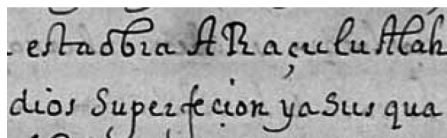 estaobra A Raçulu Alah
dios Superfecion yasus qua